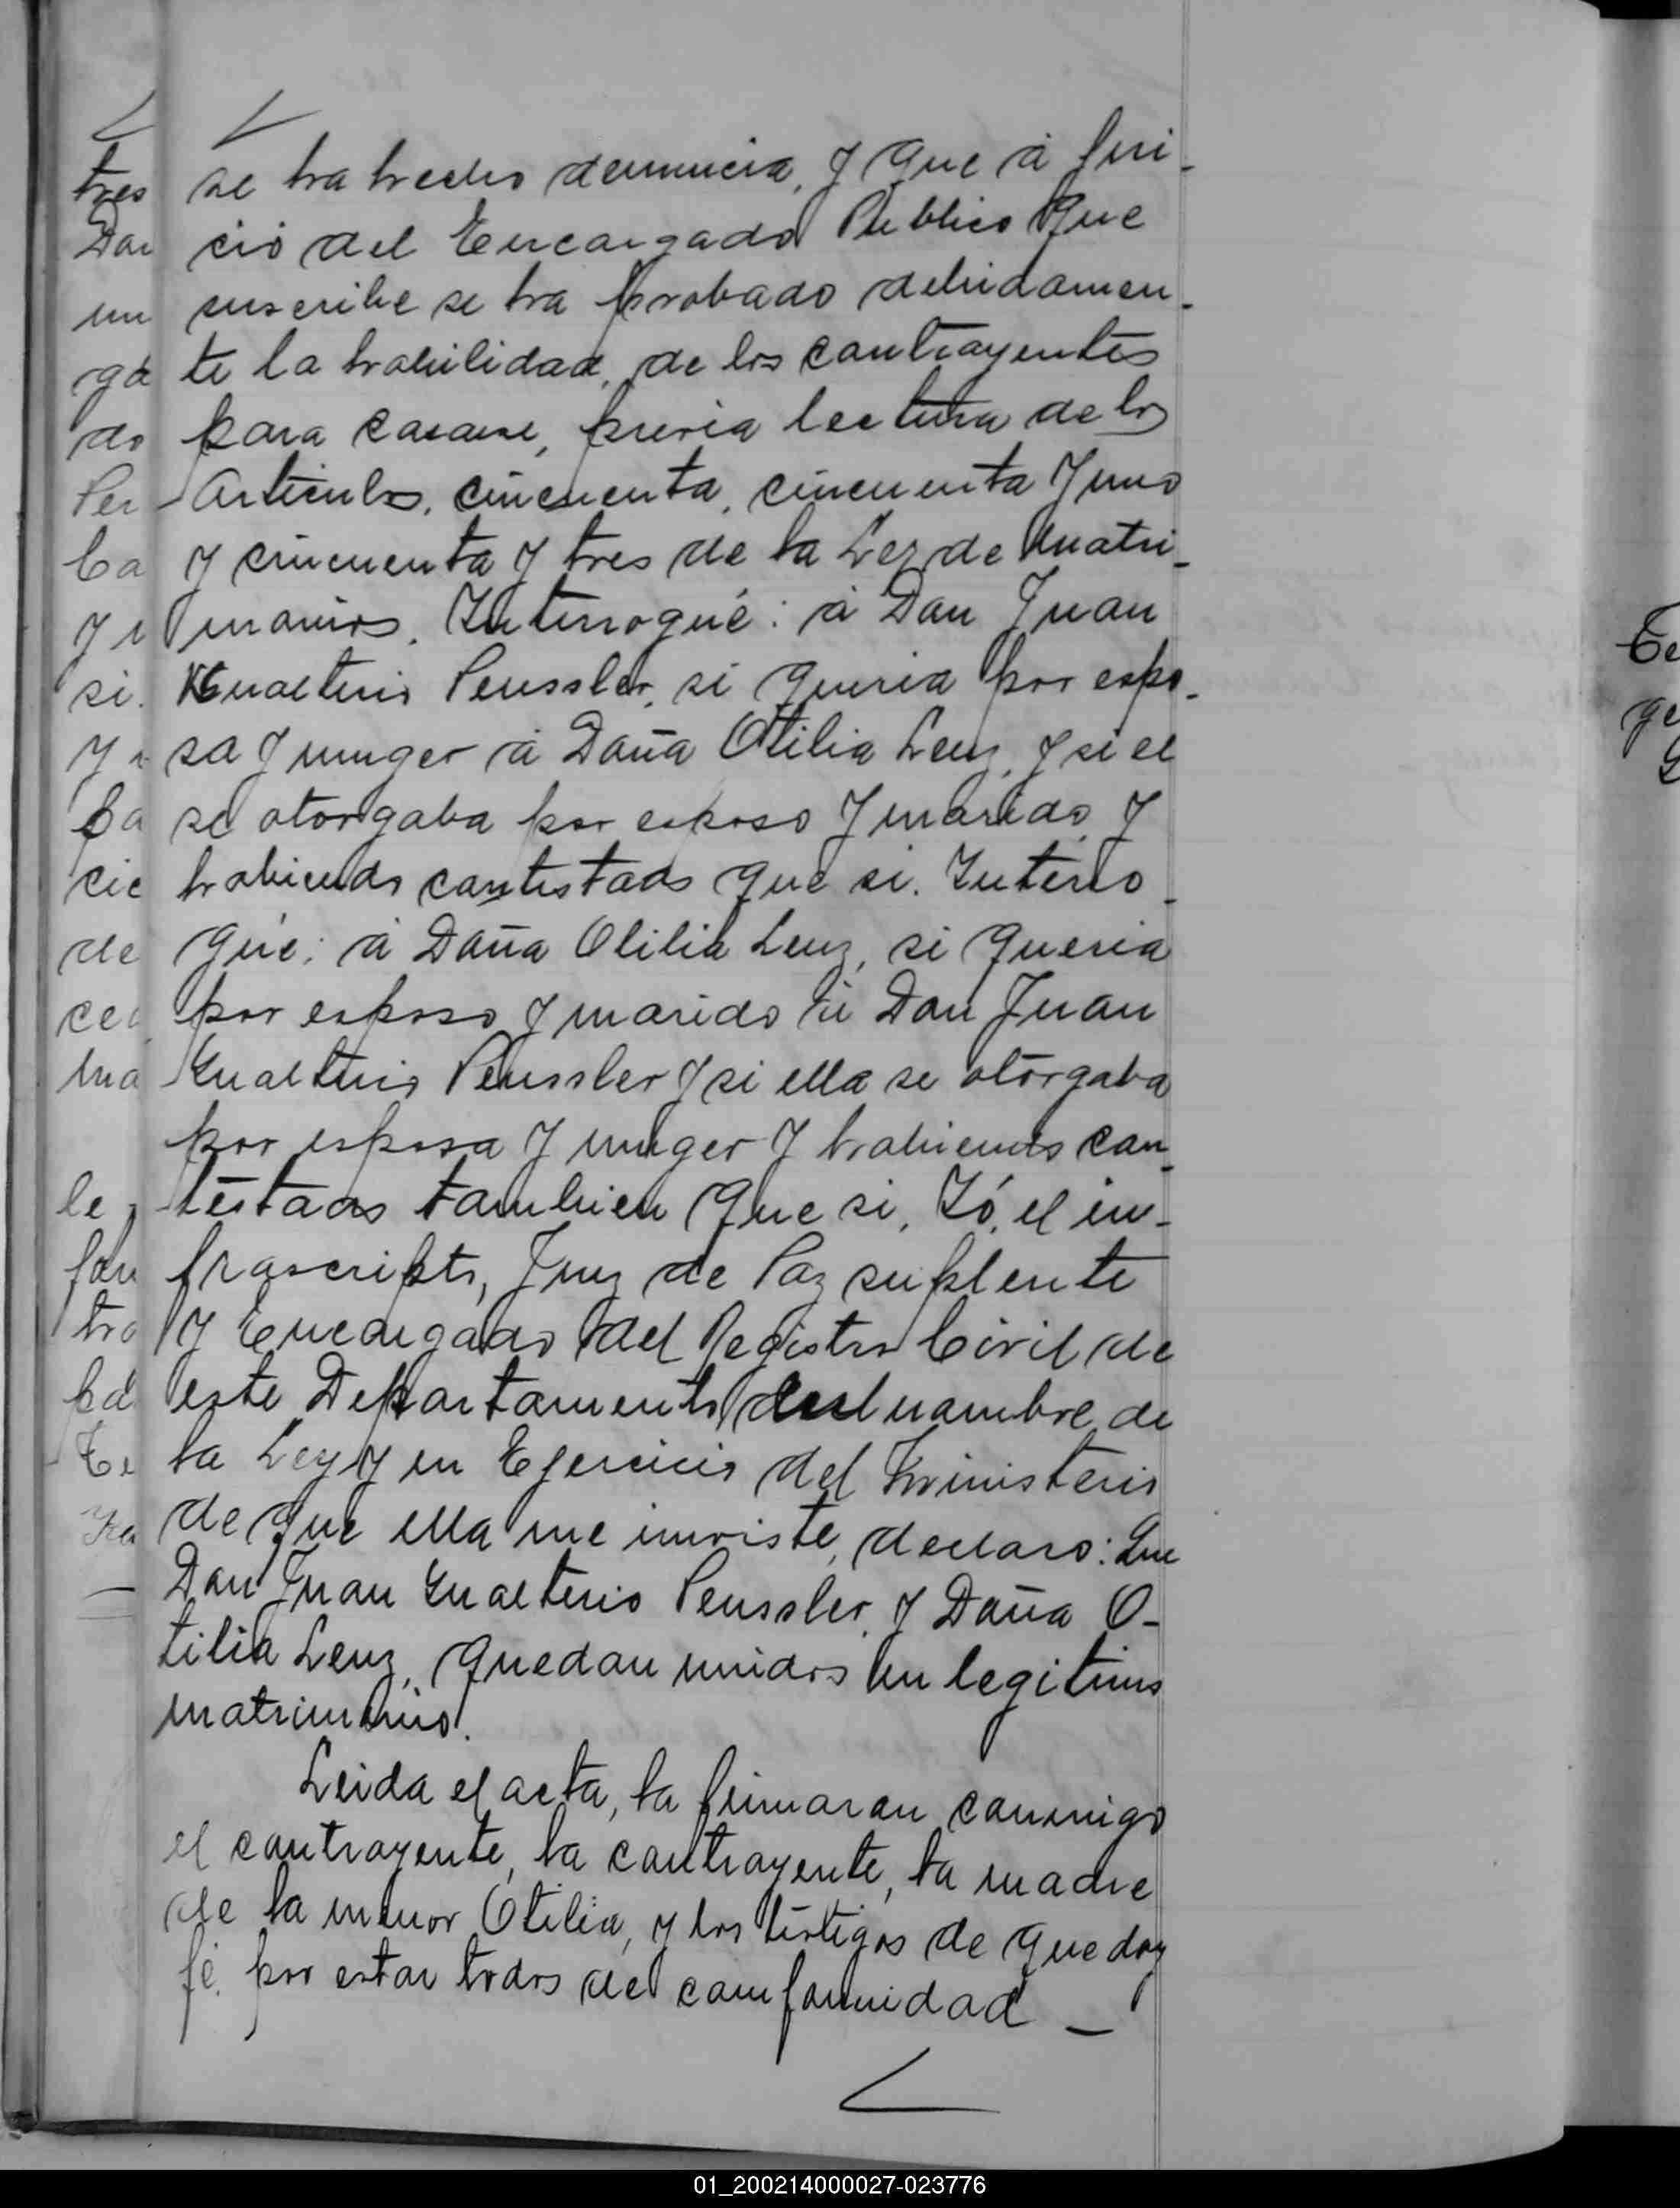 se ha hecho denuncia, y que á jui-
cio del Encargado Publico que
suscribe se ha probado debidamen-
te la habilidad, de los contrayentes
para casarse, previa lectura de los
Articulos, cincuenta, cincuenta y uno
y cincuenta y tres de la Ley de Matri-
monios. Interrogué: á Don Juan
Gualterio Peussler, si queria por espo-
sa y muger á Doña Otilia Lenz, y si el
se otorgaba por esposo y marido, y
habiendo contestado que si. Interro-
gué: á Doña Otilia Lenz, si queria
por esposo y marido á Don Juan
Gualterio Peussler y si ella se otorgaba
por esposa y muger y habiendo con-
testado tambien que si, Yó, el in-
frascripto, Juez de Paz suplente
y Encargado del Registro Civil de
este Departamento nombre de
la Ley y en Egercicio del Ministerio
de que ella me inviste, declaro: Que
Don Juan Gualterio Peussler, y Doña O-
tilia Lenz, quedan unidos en legitimo
matrimonio.
Leida el acta, la firmaron conmigo
el contrayente, la contrayente, la madre
de la menor Otilia, y los testigos de que doy
fé, por estar todos de conformidad —
tres
Don
un
ga
do
Per
Ca
y
si.
y
Ca
cie
de
ce
ma
le
fan
ha
pa
01_200214000027-023776